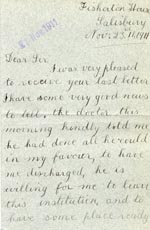 Fisherton House
Salisbury
Nov: 23rd 1911
Dear Sir
I was very pleased
to receive your last letter
I have some very good news
to tell, the doctor this
morning kindly told me
he had done all he could
in my favour, to have
me discharged, he is
willing for me to leave
this institution and to
have some place ready